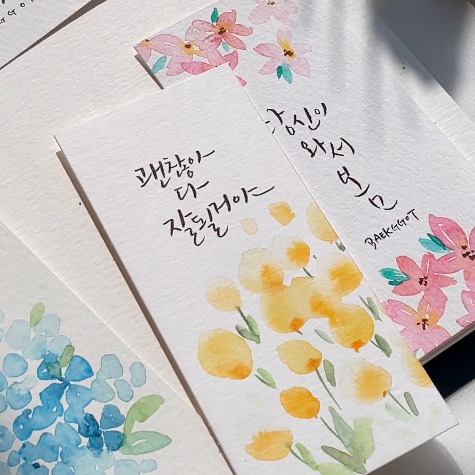 괜찮아
다
잘될거야
당신이
와서
봄
BAEKGGOT